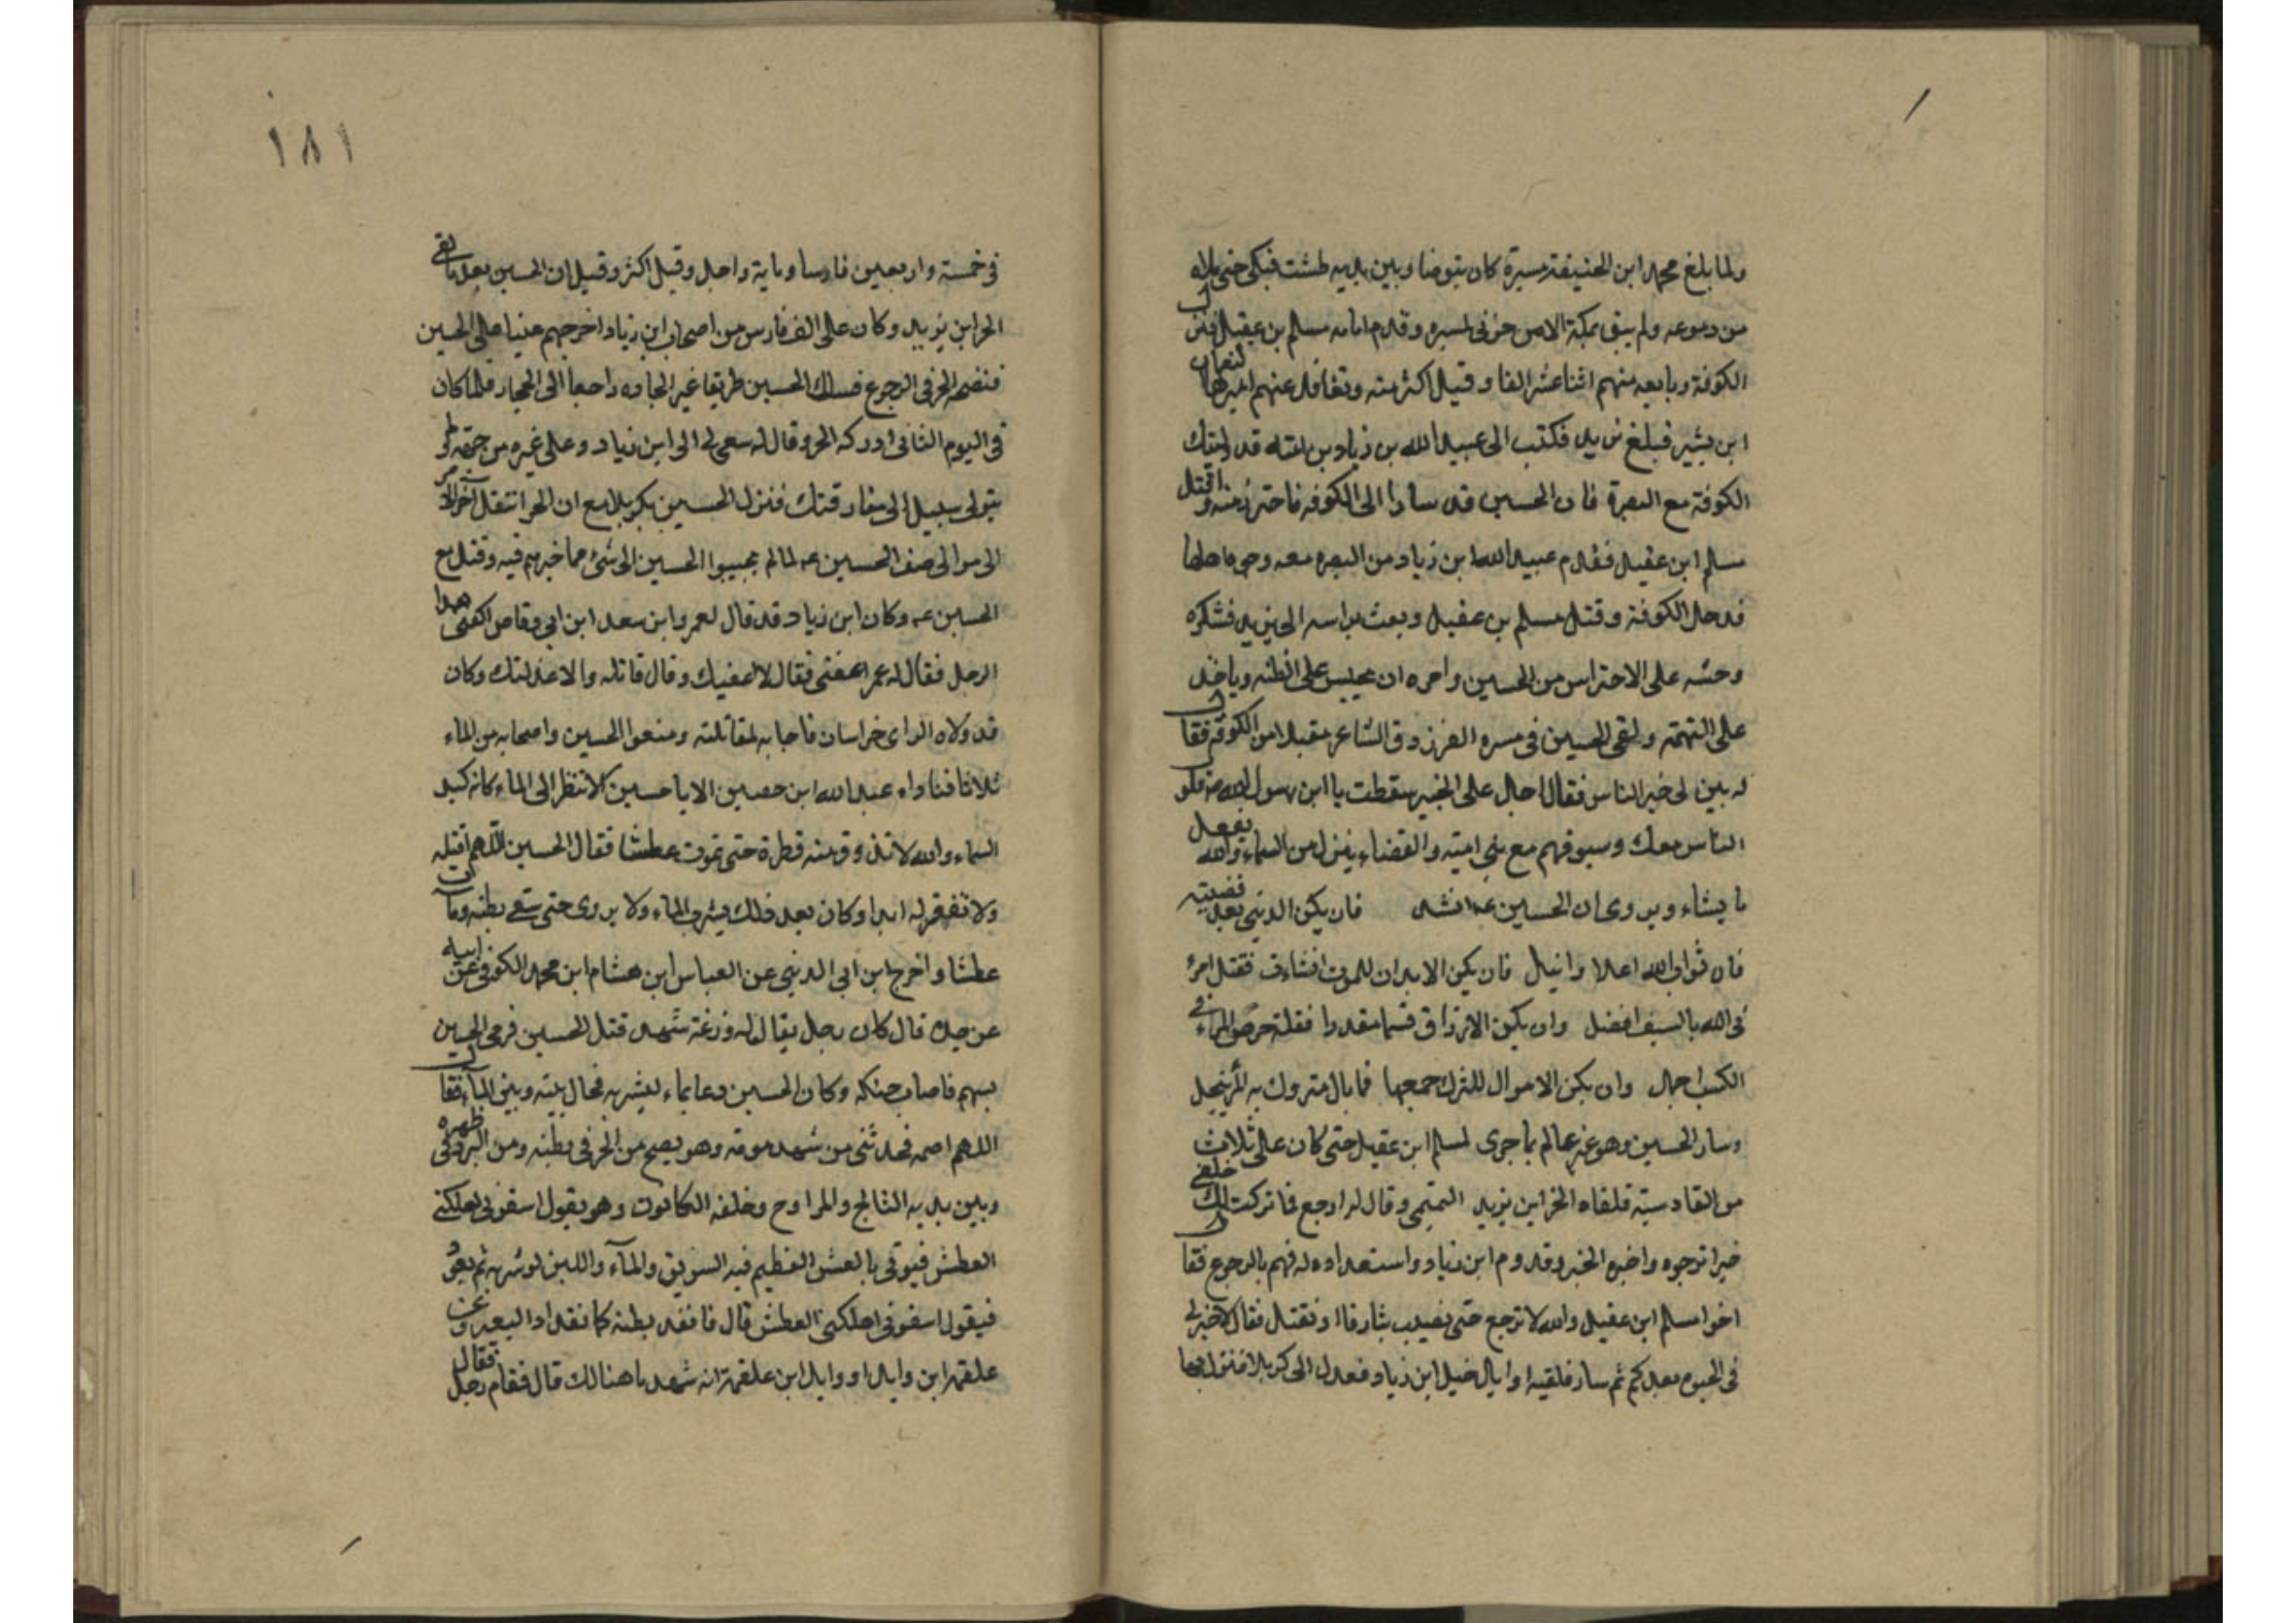 ولما بلغ محمد ابن الحنيفة مسيرة كان يتوضا وبين يديه طشت فبكى حتى ملاه
من دموعه ولم يبق بمكة الا من حزن لمسيره وقدم امامه مسلم بن عقيل فنزل
الكوفة وبايعه منهم اثنا عشر الفا وقيل اكثر منه وتغافل عنهم اميرها لنعمان
ابن بشير فبلغ يزيد فكتب الى عبيد الله بن زياد بن لقتله قد وليتك
الكوفة مع البصرة فان الحسين قد سار الى الكوفه فاحترز منه واقتل
مسلم ابن عقيل فقدم عبيد الله ابن زياد من البصره معه وجوه اهلها
فدخل الكوفة وقتل مسلم بن عقيل وبعث براسه الى يزيد فشكره
وحثه على الاحتراس من الحسين وامره ان يحبس على الظنه وياخذ
على التهمة ولقى الحسين فى مسره الفرزدق الشاعر مقبلا من الكوفة فقال
له بين لى خبر الناس فقال اجل على الخبير سقطت يا ابن رسول الله قلو
الناس معك وسيوفهم مع بنى امية والقضاء ينزل من السماء والله يفعل
ما يشاء ويروى ان الحسين انشد فان يكن الدنيى بعد
فان ثواب الله اعلا وانبل فان يكن الابدان للموت انشات فقتل امرء
فى الله بالسيف افضل وان يكن الارزاق قسما مقدرا فقلة حرص المرء فى
الكسب اجمل وان يكن الاموال للترك جمعها فما بال متروك به المرء يبخل
وسار الحسين وهو غير عالم بما جرى لمسلم ابن عقيل حتى كان على ثلاث
من القادسية فلقاه الحر ابن يزيد التميمى وقال له ارجع فما تركت لك خلفى
خيرا ترجوه واخبره الخبر وقدوم ابن زياد واستعداده له فهم بالرجوع فقال
اخوا مسلم ابن عقيل والله لا نرجع حتى نصيب بثارنا او نقتل فقال لا خير لى
فى الحيوه بعدكم ثم سار فلقيه اوايل خيل ابن زياد فعدل الى كربلا فنزل بها
١٨١
فى خمسة واربعين فارسا وماية راجل وقيل اكثر وقيل ان الحسين بعد ما لقى
الحر ابن يزيد وكان على الف فارس من اصحاب ابن زياد اخرجهم عينا على الحسين
فنصحه الحر فى الرجوع فسلك الحسين طريقا غير الجاده راجعا الى الحجاز فلما كان
فى اليوم الثانى ادركه الحر وقال له سعى لى الى ابن زياد وعلى غيره من جهته
يتولى سبيل الى مفارقتك فنزل الحسين بكربلا مع ان الحر انتقل آخر الامر
الى صف الحسين لما لم يجيبوا الحسين الى شئ مما خيرهم فيه وقتل مع
الحسين وكان ابن زياد قد قال لعمر وابن سعد ابن ابى وقاص اكفنى هذا
الرجل فقال له عمر اعفنى فقال لا اعفيك وقال قاتله والا عزلتك وكان
قد ولاه الراى خراسان فاجابه لمقاتلته ومنعوا الحسين واصحابه من الماء
ثلاثا فناداه عبد الله ابن حصين الا يا حسين لا تنظر الى الماء كانه كبد
السماء والله لا تذوق منه قطرة حتى تموت عطشا فقال الحسين اللهم اقتله
ولا تغفر له ابدا وكان بعد ذلك يشرب الماء ولا يروى حتى سقى بطنه ومات
عطشا واخرج ابن ابى الدنيى عن العباس ابن هشام ابن محمد الكوفى عن ابيه
عن جده قال كان رجل يقال له زرعة شهد قتل الحسين فرمى الحسين
بسهم فاصاب حنكه وكان الحسين دعا بماء ليشربه فحال بينه وبين الماء فقال
اللهم اضمه فحدثنى من شهد موته وهو يصيح من الحر فى بطنه ومن البرد فى ظهره
وبين يديه الثالج والمراوح وخلفه الكانون وهو يقول اسقونى اهلكنى
العطش فيوتى بالعش العظيم فيه السويق والماء واللبن لو شربه ثم يعود
فيقول اسقونى اهلكنى العطش قال فانقد بطنه كما نقداد البعير وعن
علقمه ابن وايل او وايل ابن علقمة انه شهد ما هنالك قال فقام رجل فقال